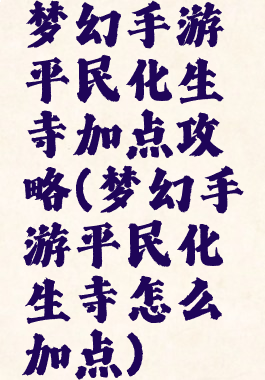 梦幻手游
平民化生
寺加点攻
略(梦幻手
游平民化
生寺怎么
加点)